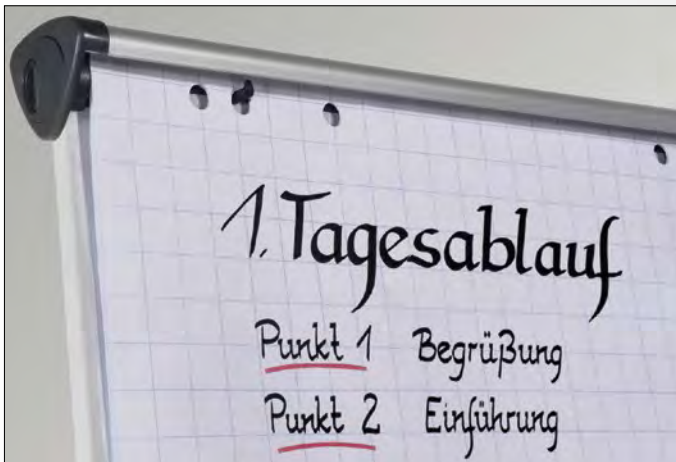 1. Tagesablauf
Punkt 1 Begrüßung
Punkt 2 Einführung